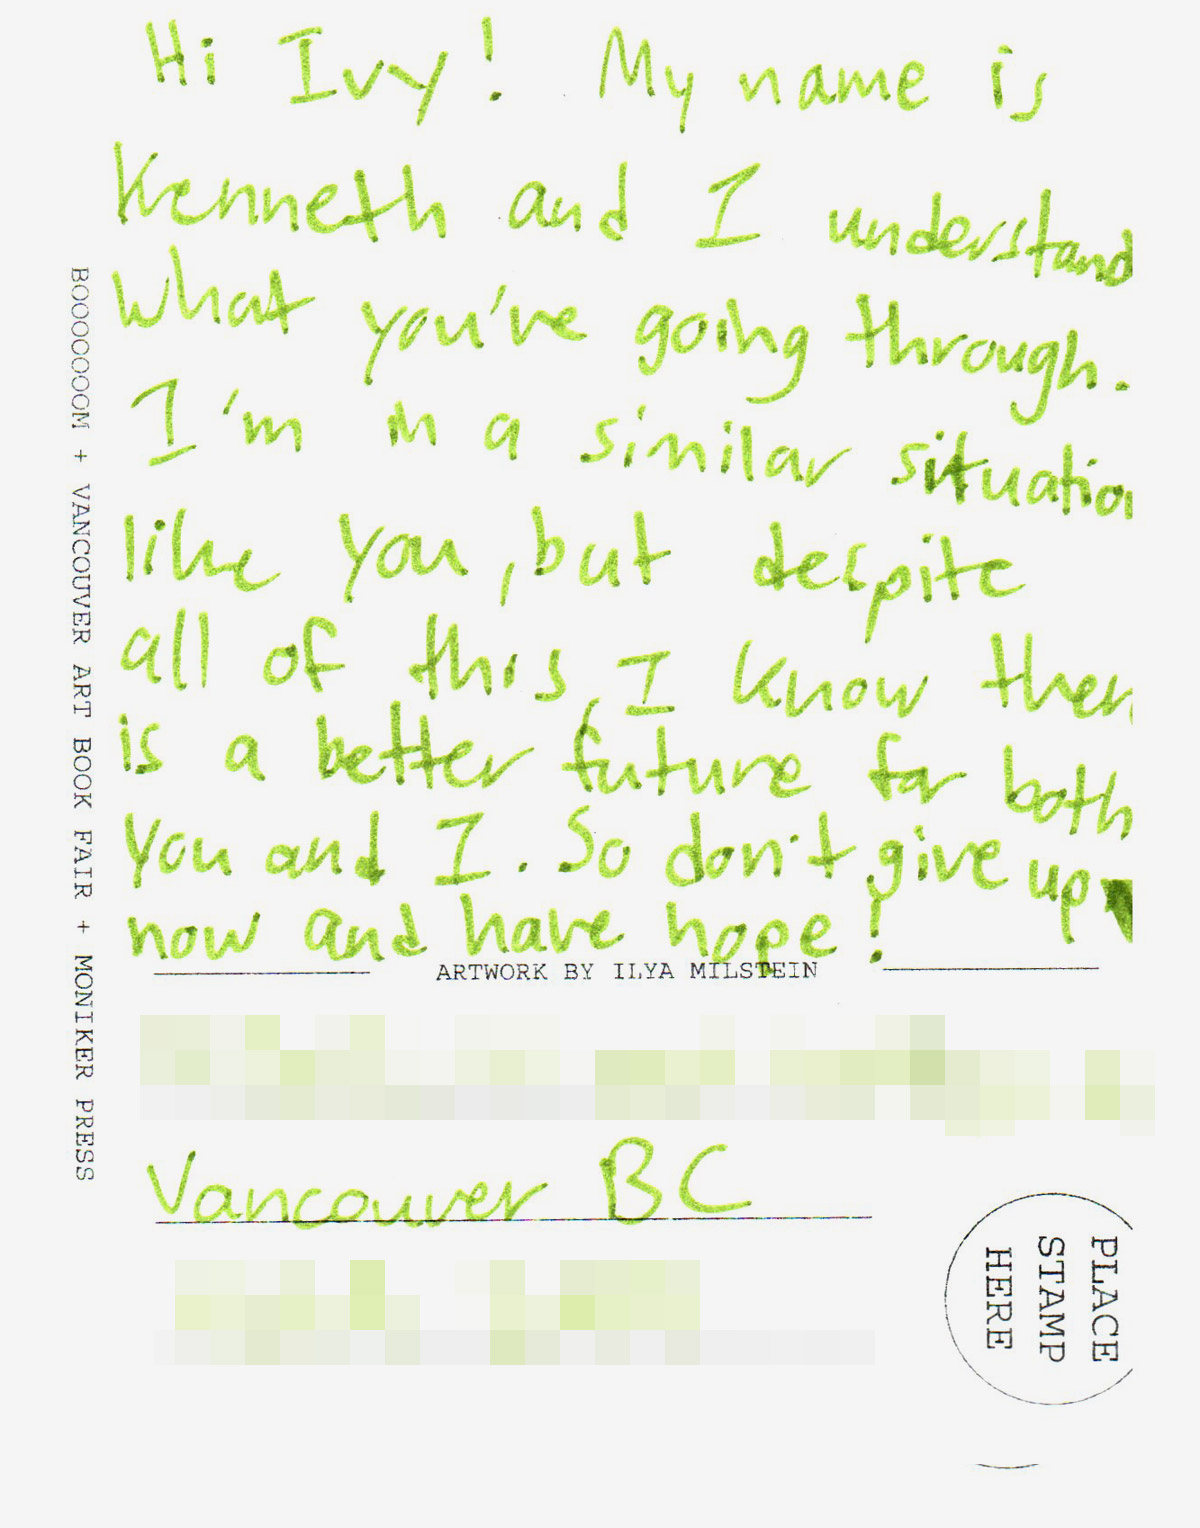 Hi Ivy! My name is
Kenneth and I understand
what you've going through.
I'm in a similar situation
like you, but despite
all of this, I know there
is a better future for both
you and I. So don't give up
now and have hope!
ARTWORK BY ILYA MILSTEIN
Vancouver BC
PLACE
STAMP
HERE
BOOOOOOOM + VANCOUVER ART BOOK FAIR + MONIKER PRESS